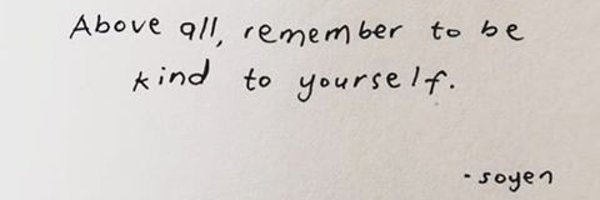 Above all, remember to be
kind to yourself.
- soyen